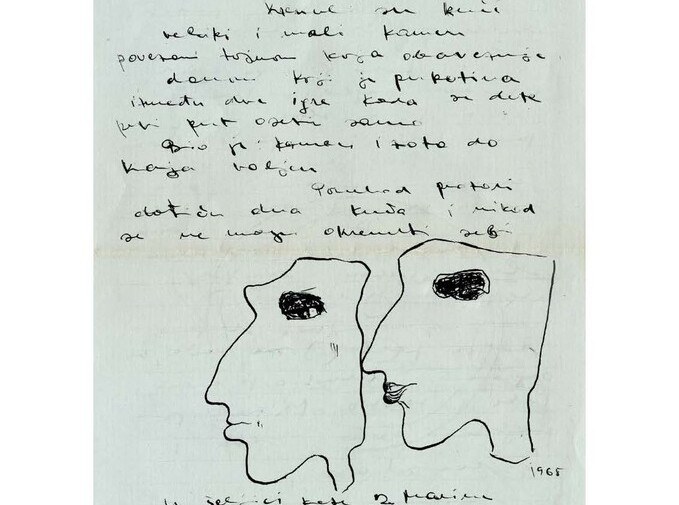 su kući
veliki i mali kamen
povezani tajnom koja obavezuje
danom koji je pukotina
između dve igre kada se dete
prvi put oseti samo
Bio je kamen i zato do
kraja voljen
Ponekad prozori
dna kuća i nikad
se ne mogu okrenuti sebi
1965